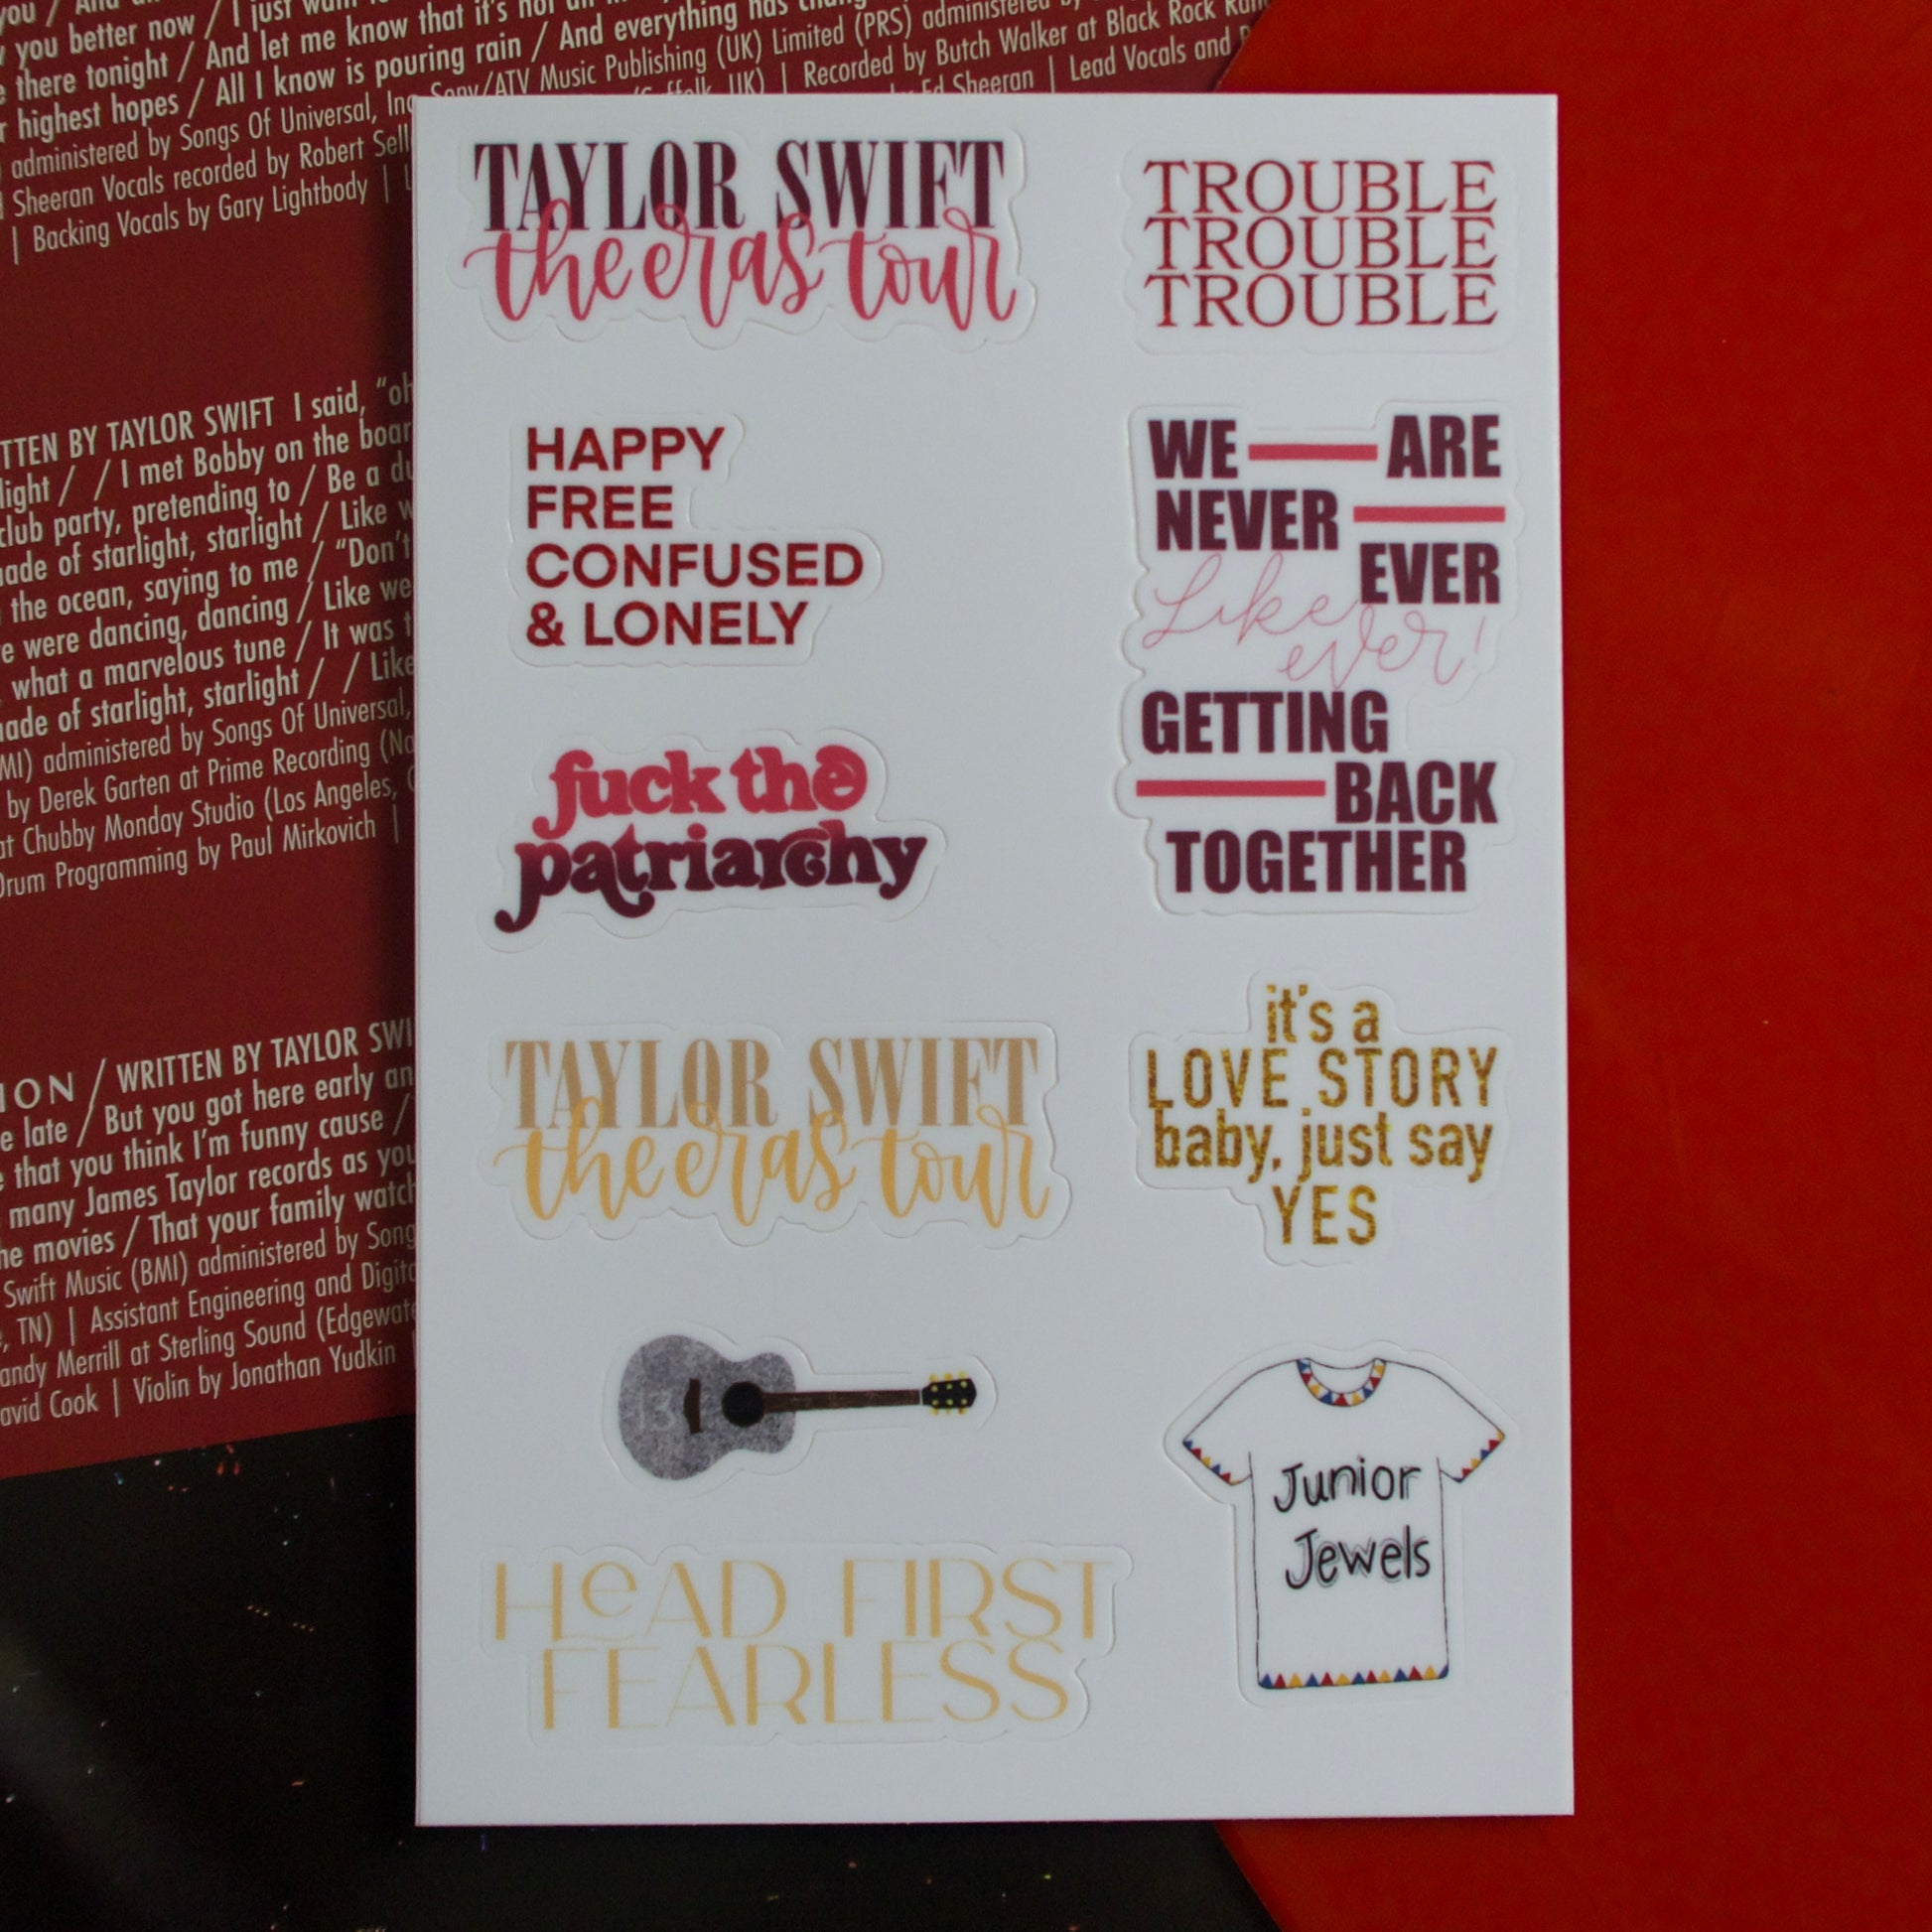 you better now / I just
there tonight / And let me know that it's not
highest hopes / All I know is pouring rain / And everything has
administered by Songs Of Universal, Inc. Sony/ATV Music Publishing (UK) Limited (PRS) administered
Sheeran Vocals recorded by Robert UK) | Recorded by Butch Walker at Black Rock
| Backing Vocals by Gary Lightbody | Ed Sheeran | Lead Vocals and
WRITTEN BY TAYLOR SWIFT I said, "oh
/ / I met Bobby on the
club party, pretending to / Be a
made of starlight, starlight / Like
the ocean, saying to me / "Don't
were dancing, dancing / Like we
what a marvelous tune / It was
made of starlight, starlight / / Like
administered by Songs Of Universal,
by Derek Garten at Prime Recording
at Chubby Monday Studio (Los Angeles,
Drum Programming by Paul Mirkovich |
ION / WRITTEN BY TAYLOR SWI
late / But you got here early
that you think I'm funny cause /
many James Taylor records as you
movies / That your family
Swift Music (BMI) administered by
TN) | Assistant Engineering and
Merrill at Sterling Sound
Cook | Violin by Jonathan Yudkin
TAYLOR SWIFT
the eras tour
TROUBLE
TROUBLE
TROUBLE
HAPPY
FREE
CONFUSED
& LONELY
WE ARE
NEVER
EVER
Like
ever!
GETTING
BACK
TOGETHER
fuck the
patriarchy
TAYLOR SWIFT
the eras tour
it's a
LOVE STORY
baby, just say
YES
13
Junior
Jewels
HeAD FIRST
FEARLESS